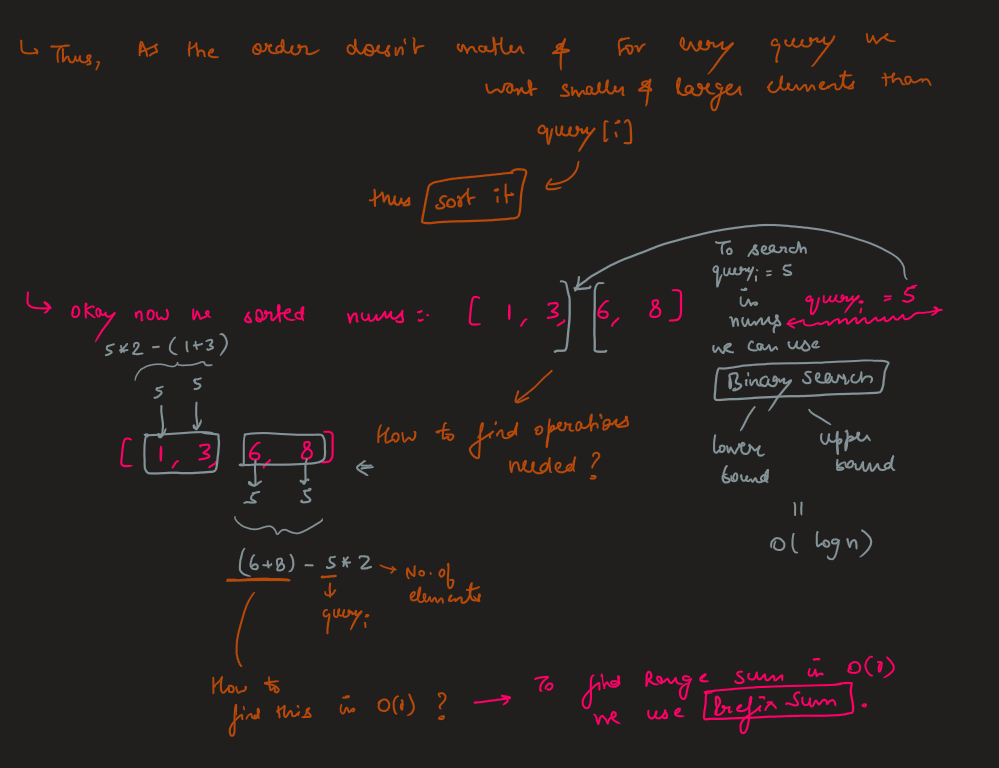 ↳ Thus, As the order doesn't matter & For every query we
want smaller & larger elements than
query[i]
thus sort it
To search
queryi = 5
in
nums
we can use
Binary Search
lower bound
upper bound
||
O( log n)
queryi = 5
↳ okay now we sorted nums :- [ 1, 3, ] [ 6, 8 ]
5*2 - (1+3)
5 5
[ 1, 3, 6, 8 ]
5 5
How to find operations
needed ?
(6+8) - 5*2 → No. of
elements
queryi
How to
find this in O(1) ? → To find Range sum in O(1)
we use Prefix Sum.